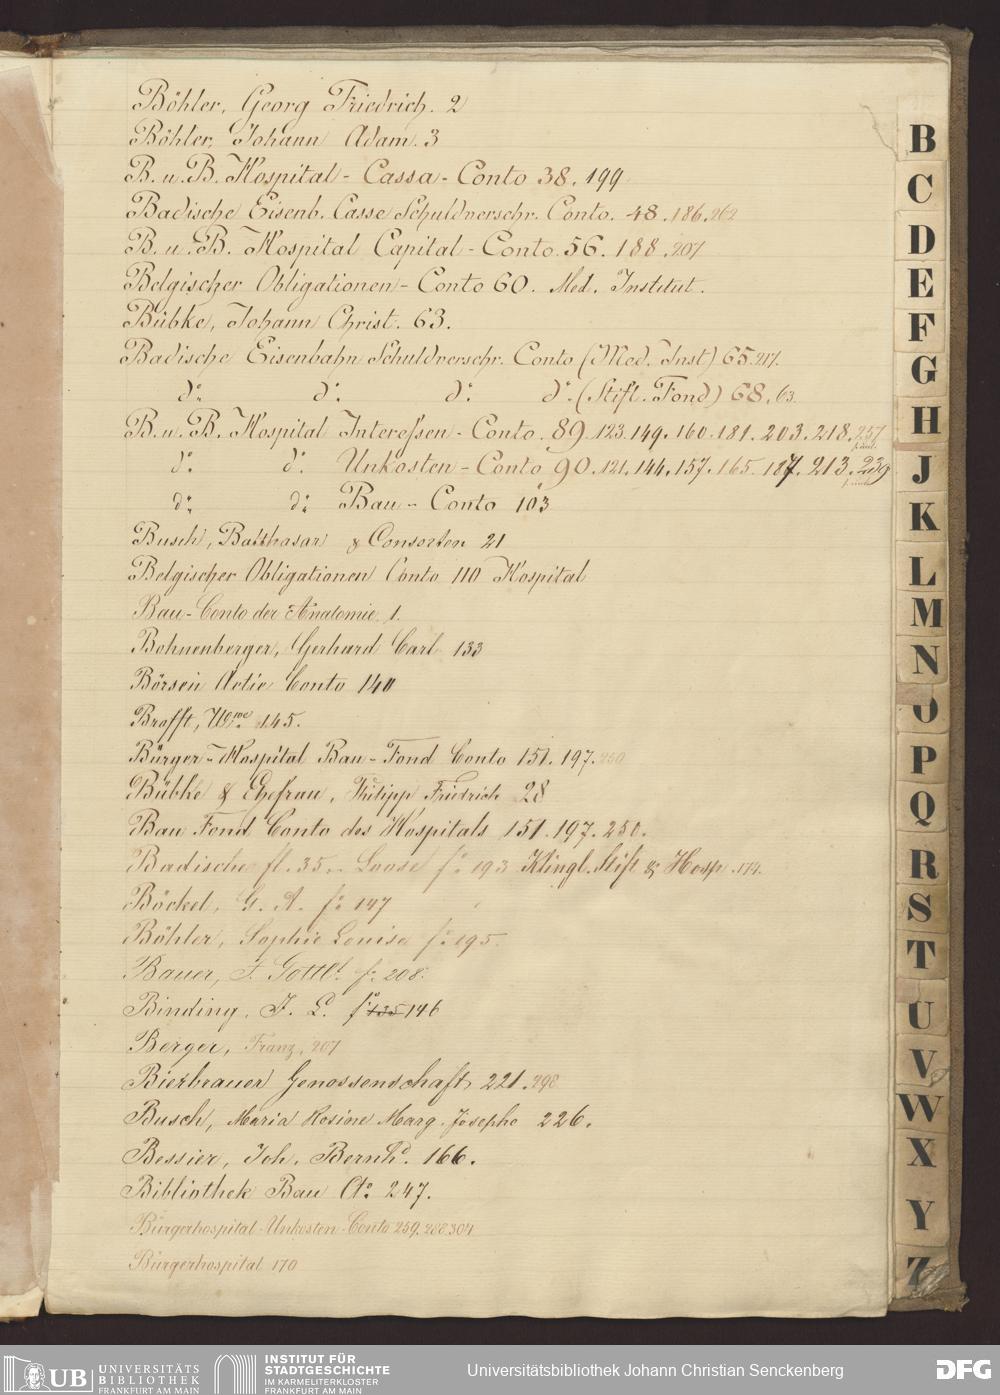 Böhler, Georg Friedrich. 2
Böhler, Johann Adam. 3
B. u. B. Hospital - Cassa - Conto 38. 199
Badische Eisenb. Casse Schuldverschr. Conto. 48. 186. 262
B. u. B. Hospital Capital - Conto. 56. 188. 207
Belgischer Obligationen - Conto 60. Med. Institut.
Bübke, Johann Christ. 63.
Badische Eisenbahn Schuldverschr. Conto (Med. Inst) 65. 217.
do. do. do. do. (Stift. Fond) 68. 63.
B. u. B. Hospital Interessen - Conto. 89. 123. 149. 160. 181. 203. 218. 257
do. do. Unkosten - Conto 90. 121. 144. 157. 165. 187. 213. 239
do. do. Bau - Conto 103
Busch, Balthasar & Consorten 21
Belgischer Obligationen Conto 110 Hospital
Bau - Conto der Anatomie. 1.
Bohnenberger, Gerhard Carl 133
Börsen Actie Conto 140
Brofft, Wwe. 145.
Bürger - Hospital Bau - Fond Conto 151. 197. 250
Bübke & Ehefrau, Philipp Friedrich 28
Bau Fond Conto des Hospitals 151. 197. 250.
Badische fl. 35 Loose fo. 193 Klingl. Stift & Hosp. 174.
Böckel, G. A. fo. 147
Böhler, Sophie Louise fo. 195.
Bauer, F. Gottl. fo. 208.
Binding, F. L. fo. 135 146
Berger, Franz, 207
Bierbrauer Genossenschaft, 221. 298
Busch, Maria Rosine Marg. Josepha 226.
Bessier, Joh. Bernhd. 166.
Bibliothek Bau Cto. 247.
Bürgerhospital - Unkosten - Conto 259. 288. 304
Bürgerhospital 170
B
C
D
E
F
G
H
J
K
L
M
N
O
P
Q
R
S
T
U
V
W
X
Y
Z
UB UNIVERSITÄTS
BIBLIOTHEK
FRANKFURT AM MAIN
INSTITUT FÜR
STADTGESCHICHTE
IM KARMELITERKLOSTER
FRANKFURT AM MAIN
Universitätsbibliothek Johann Christian Senckenberg
DFG